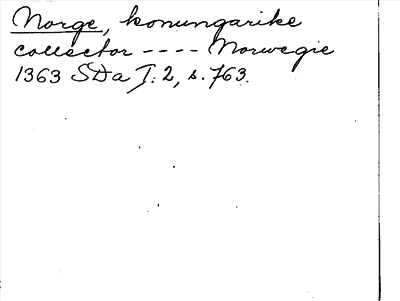 Norge, konungarike
collector ---- Norwegie
1363 SDa I: 2, s. 763.